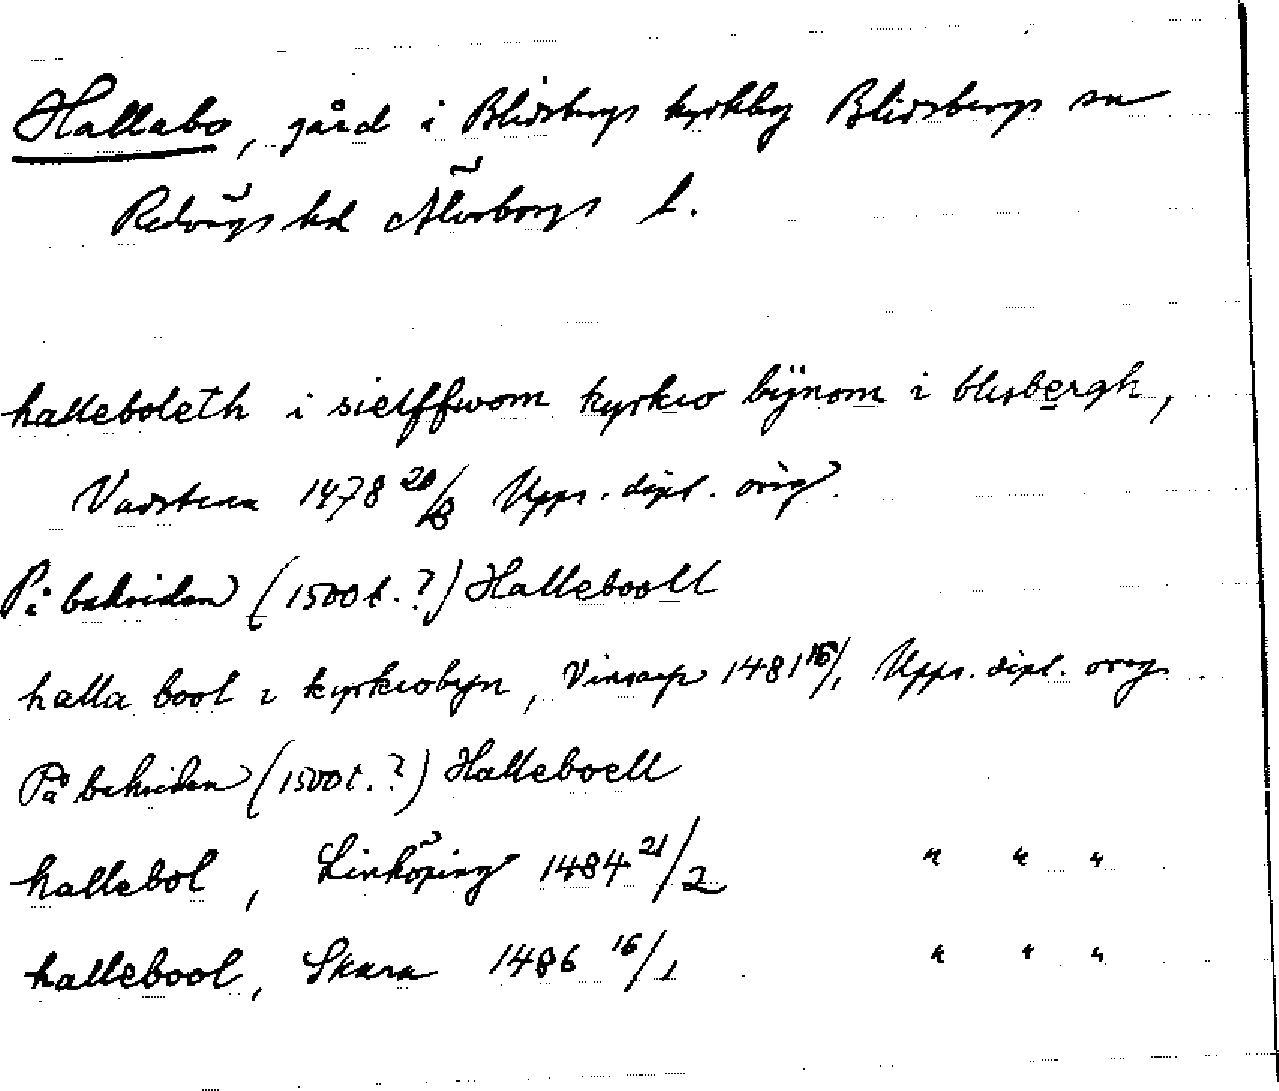 Hallabo, gård i Blidsbergs kyrkby Blidsbergs sn
Redvägs hd Älvsborgs l.
halleboleth i sielffwom kyrkio bÿnom i blisbergh,
Vadstena 1478 20/8 Upps. dipl. orig.
På baksidan (1500 t. ?) Halleboell
halla bool i kyrkiobyn, Vinsarp 1481 15/1 Upps. dipl. orig
På baksidan (1500 t. ?) Halleboell
hallebol, Linköping 1484 21/2 " " "
hallebool, Skara 1486 16/1 " " "